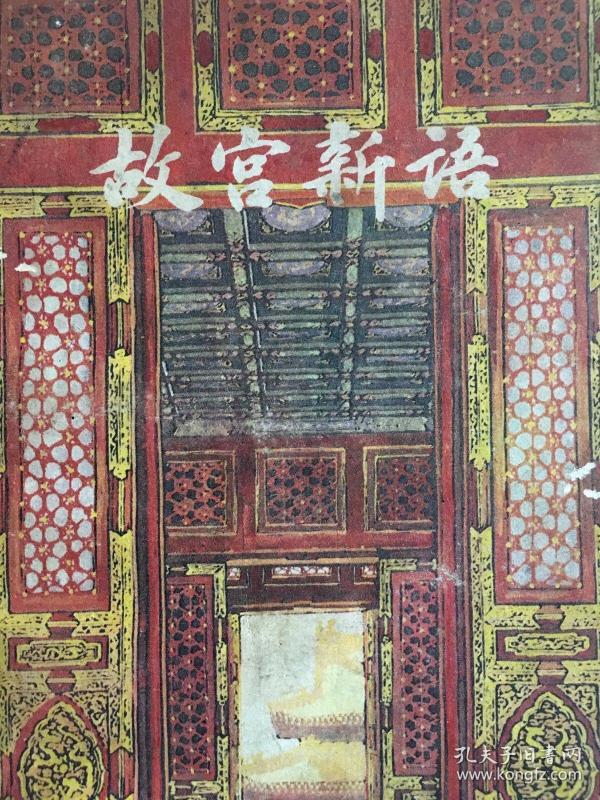 故宫新语
孔夫子旧书网
www.kongfz.com